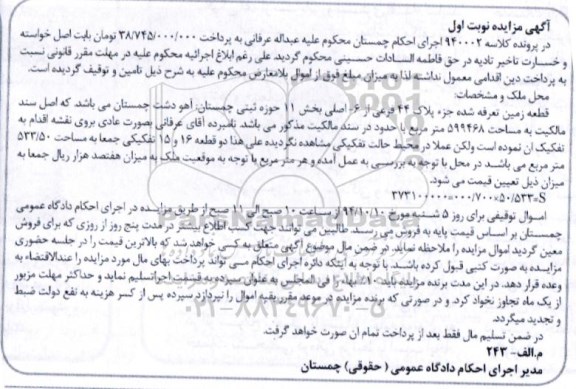 آگهی مزایده نوبت اول
در پرونده کلاسه ۹۴۰۰۰۲ اجرای احکام چمستان محکوم علیه عبداله عرفانی به پرداخت ۳۸/۷۴۵/۰۰۰/۰۰۰ تومان بابت اصل خواسته
و خسارت تاخیر تادیه در حق فاطمه السادات حسینی محکوم گردید. علی رغم ابلاغ اجرائیه محکوم علیه در مهلت مقرر قانونی نسبت
به پرداخت دین اقدامی معمول نداشته لذا به میزان مبلغ فوق از اموال بلامعارض محکوم علیه به شرح ذیل تامین و توقیف گردیده است.
محل ملک و مشخصات:
قطعه زمین تعرفه شده جزء پلاک ۴۴ فرعی از ۶- اصلی بخش ۱۱ حوزه ثبتی چمستان، آهو دشت چمستان می باشد که اصل سند
مالکیت به مساحت ۵۹۹۴۶۸ متر مربع با حدود در سند مالکیت مذکور می باشد. نامبرده آقای عرفانی بصورت عادی بروی نقشه اقدام به
تفکیک آن نموده است ولکن عملا در محیط حالت تفکیکی مشاهده نگردیده علی هذا دو قطعه ۱۶ و ۱۵ تفکیکی جمعا به مساحت ۵۳۳/۵۰
متر مربع می باشد در محل با توجه به بررسی به عمل آمده و هر متر مربع با توجه به موقعیت ملک به میزان هفتصد هزار ریال جمعا به
میزان ذیل تعیین قیمت می شود.
S=۵۳۳/۵۰×۷۰۰/۰۰۰=۳۷۳۱۰۰۰۰۰
اموال توقیفی برای روز ۵ شنبه مورخ ۹۴/۱ از ساعت ۱۰ صبح الی ۱۱ صبح از طریق مزایده در اجرای احکام دادگاه عمومی
چمستان بر اساس قیمت پایه به فروش می رسد. طالبین می توانند جهت کسب اطلاع بیشتر در مدت پنج روز از روزی که برای فروش
معین گردید اموال مزایده را ملاحظه نماید. در ضمن مال موضوع آگهی متعلق به کسی خواهد شد که بالاترین قیمت را در جلسه حضوری
مزایده به صورت کتبی قبول کرده باشد. با توجه به اینکه دائره اجرای احکام می تواند پرداخت بهای مال مورد مزایده را عندالاقتضاء به
وعده قرار دهد. در این مدت برنده مزایده باید ۱۰٪ بهاء را فی المجلس به عنوان سپرده به قسمت اجرا تسلیم نماید و حداکثر مهلت مزبور
از یک ماه تجاوز نخواد کرد. و در صورتی که برنده مزایده در موعد مقرر بقیه اموال را نپردازد سپرده پس از کسر هزینه به نفع دولت ضبط
و تجدید میگردد.
در ضمن تسلیم مال فقط بعد از پرداخت تمام آن صورت خواهد گرفت.
م.الف- ۲۴۳
مدیر اجرای احکام دادگاه عمومی ( حقوقی) چمستان
۰۲۱-۸۸۳۴۹۶۷۰-۵